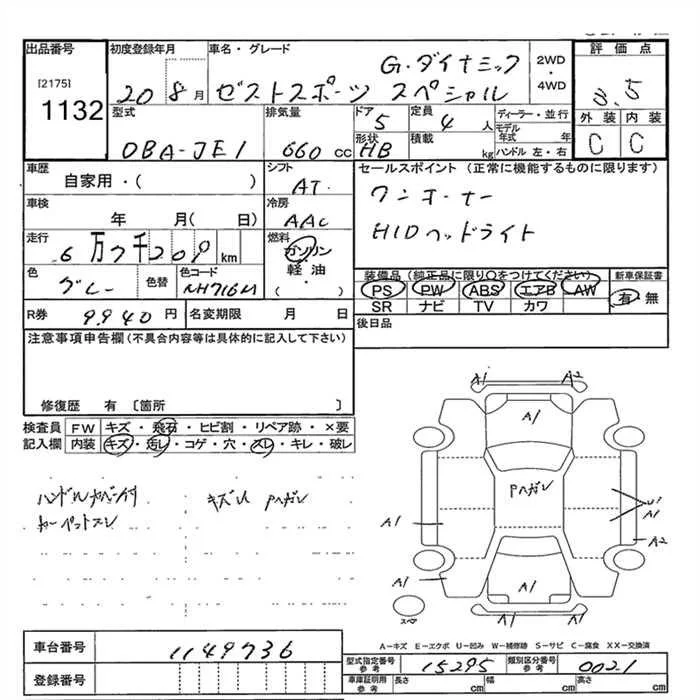 出品番号 初度登録年月 車名・グレード 2WD・4WD 評価点
[2175]
1132
20 8月 ゼストスポーツ G・ダイナミック
スペシャル
3.5
型式 排気量 ドア 定員 ディーラー・並行 外装 内装
DBA-JE1 660cc 5 4人 モデル年式 年 C C
形状 積載 ハンドル 左・右
HB kg
車歴 自家用・( ) シフト AT セールスポイント (正常に機能するものに限ります)
車検 年 月( 日) 冷房 AAC ワンオーナー
走行 6万7千209km 燃料 ガソリン・軽油・( ) HIDヘッドライト
色 グレー 色替 色コード NH716M
装備品 (純正品に限り○をつけてください) 新車保証書
PS PW ABS エアB AW 有・無
SR ナビ TV カワ
R券 9940円 名変期限 月 日 後日品
注意事項申告欄 (不具合内容等は具体的に記入して下さい)
修復歴 有 〔箇所 〕
検査員 FW キズ・飛石・ヒビ割・リペア跡・×要
記入欄 内装 キズ・汚レ・コゲ・穴・スレ・キレ・破レ
キズU Pハガレ
カーペットスレ
A1 A2
A1
Pハガレ
U1
A1 A1
A2
A1
A1
スペア
A1 A1
A-キズ E-エクボ U-凹み W-補修跡 S-サビ C-腐食 XX-交換済
車台番号 1149736
登録番号
型式指定番号 参考 15295 類別区分番号 参考 0021
車庫証明用 参考 長さ cm 幅 cm 高さ cm